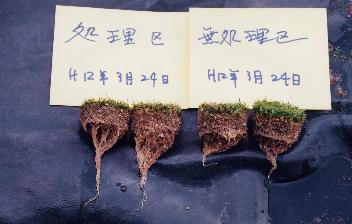 処理区
H12年3月24日
無処理区
H12年3月24日